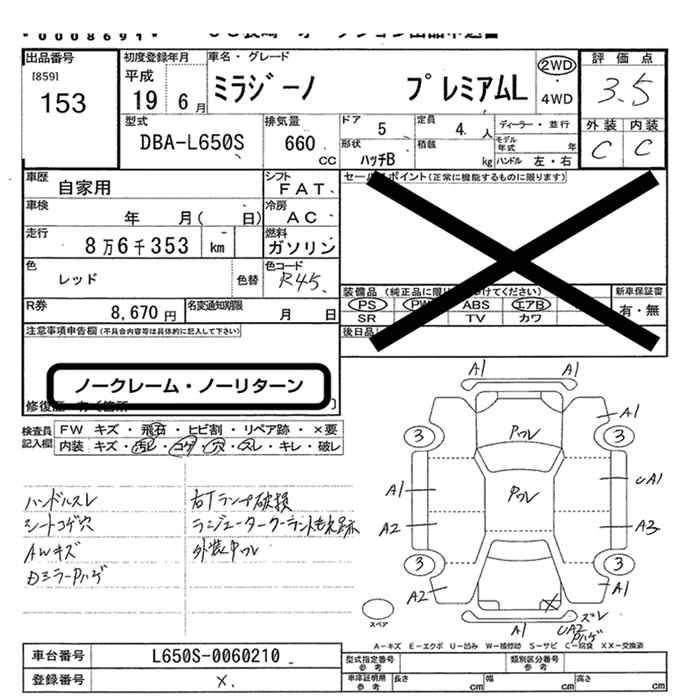 出品番号
[859]
153
初度登録年月
平成
19 6 月
車名・グレード
ミラジーノ プレミアムL
2WD
・
4WD
評価点
3.5
外装 内装
C C
型式
DBA-L650S
排気量
660
cc
ドア
5
定員
4 人
ディーラー・並行
モデル
年式 年
形状
ハッチB
積載
kg
ハンドル 左・右
車歴
自家用
シフト
FAT
車検
年 月( 日)
冷房
AC
走行
8万6千353 km
燃料
ガソリン
色
レッド
色替
色コード
R45
R券
8,670 円
名変通知期限
月 日
セールスポイント(正常に機能するものに限ります)
PS PW ABS エアB
SR TV カワ
新車保証書
有・無
後日品
注意事項申告欄(不具合内容等は具体的に記入して下さい)
ノークレーム・ノーリターン
検査員
記入欄
FW キズ・飛石・ヒビ割・リペア跡・×要
内装 キズ・汚レ・コゲ・穴・スレ・キレ・破レ
ハンドルスレ
シートコゲ穴
AWキズ
Dミラーハゲ
右Tランプ破損
ラジエータークーラントもれ跡
外装中ワレ
A1
A1
3
3
PワレPワレ
A1
UA1
A2
A3
3
3
A2
A1
A1
ズレ
UA2
ハゲ
スペア
A-キズ E-エクボ U-凹み W-補修跡 S-サビ C-腐食 XX-交換済
車台番号
L650S-0060210
登録番号
×
型式指定番号
参考
類別区分番号
参考
車庫証明用
参考
長さ cm
幅 cm
高さ cm